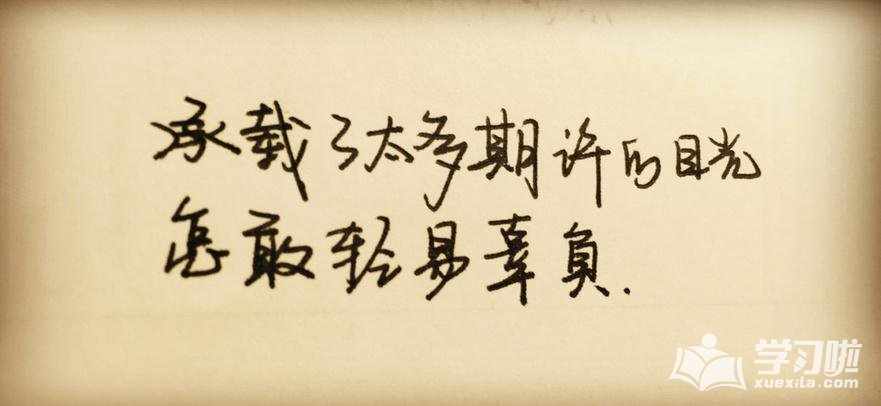 承载了太多期许的目光
怎敢轻易辜负.
学习啦
xuexila.com